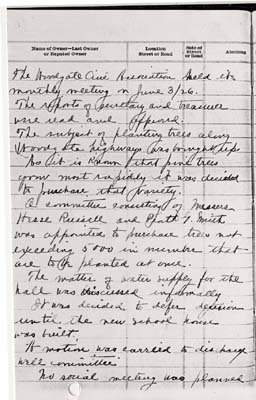 Name of Owner—Last Owner or Reputed Owner
Location Street or Road
Side of Street or Road
Abutting
The Woodgate Civic Association held its
monthly meeting on June 3/26.
The reports of Secretary and treasurer
were read and approved.
The subject of planting trees along
Woodgate highways was brought up.
As it is known that pine trees
grow most rapidly it was decided
to purchase that variety.
A committee consisting of Messers
Hesse Russell and
was appointed to purchase trees not
exceeding 5000 in number that
are to be planted at once.
The matter of water supply for the
hall was discussed informally
It was decided to defer decision
until the new school house
was built.
A motion was carried to discharge
well committee
No social meeting was planned